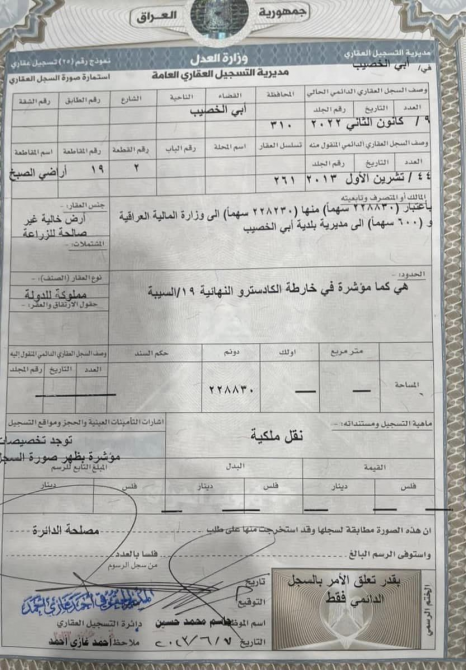 جمهورية العراق
وزارة العدل
مديرية التسجيل العقاري العامة
مديرية التسجيل العقاري
في/ أبي الخصيب
نموذج رقم (١٥) تسجيل عقاري
استمارة صورة السجل العقاري
وصف السجل العقاري الدائمي الحالي
المحافظة القضاء الناحية الشارع رقم الطابق رقم الشقة
العدد التاريخ رقم الجلد
أبي الخصيب
٩/ كانون الثاني ٢٠٢٢ ٣١٠
وصف السجل العقاري الدائمي المنقول منه
تسلسل العقار اسم المحلة رقم الباب رقم القطعة رقم المقاطعة اسم المقاطعة
العدد التاريخ رقم الجلد
٢ ١٩ أراضي الصبخ
٤٤/ تشرين الأول ٢٠١٣ ٢٦١
المالك أو المتصرف وتابعيته
باعتبار (٢٢٨٨٣٠ سهماً) منها (٢٢٨٢٣٠ سهماً) الى وزارة المالية العراقية
و (٦٠٠ سهماً) الى مديرية بلدية أبي الخصيب
جنس العقار:-
أرض خالية غير
صالحة للزراعة
المشتملات:-
الحدود:-
هي كما مؤشرة في خارطة الكادسترو النهائية ١٩/السيبة
نوع العقار (الصنف):-
مملوكة للدولة
حقوق الارتفاق والعقر:-
المساحة
متر مربع اولك دونم حكم السند
٢٢٨٨٣٠
وصف السجل العقاري الدائمي المنقول اليه
العدد التاريخ رقم المجلد
ماهية التسجيل ومستنداته:-
نقل ملكية
اشارات التأمينات العينية والحجز ومواقع التسجيل
توجد تخصيصات
مؤشرة بظهر صورة السجل
القيمة البدل المبلغ التابع للرسم
فلس دينار فلس دينار فلس دينار
ان هذه الصورة مطابقة لسجلها وقد استخرجت منها على طلب مصلحة الدائرة
واستوفى الرسم البالغ فلسا بالعدد
من سجل الرسوم
تاريخ
التوقيع
اسم الموظف جاسم محمد حسين
التاريخ ٢٠٢٣/٦/٧
دائرة التسجيل العقاري
ملاحظ أحمد غازي أحمد
الختم الرسمي
بقدر تعلق الأمر بالسجل
الدائمي فقط